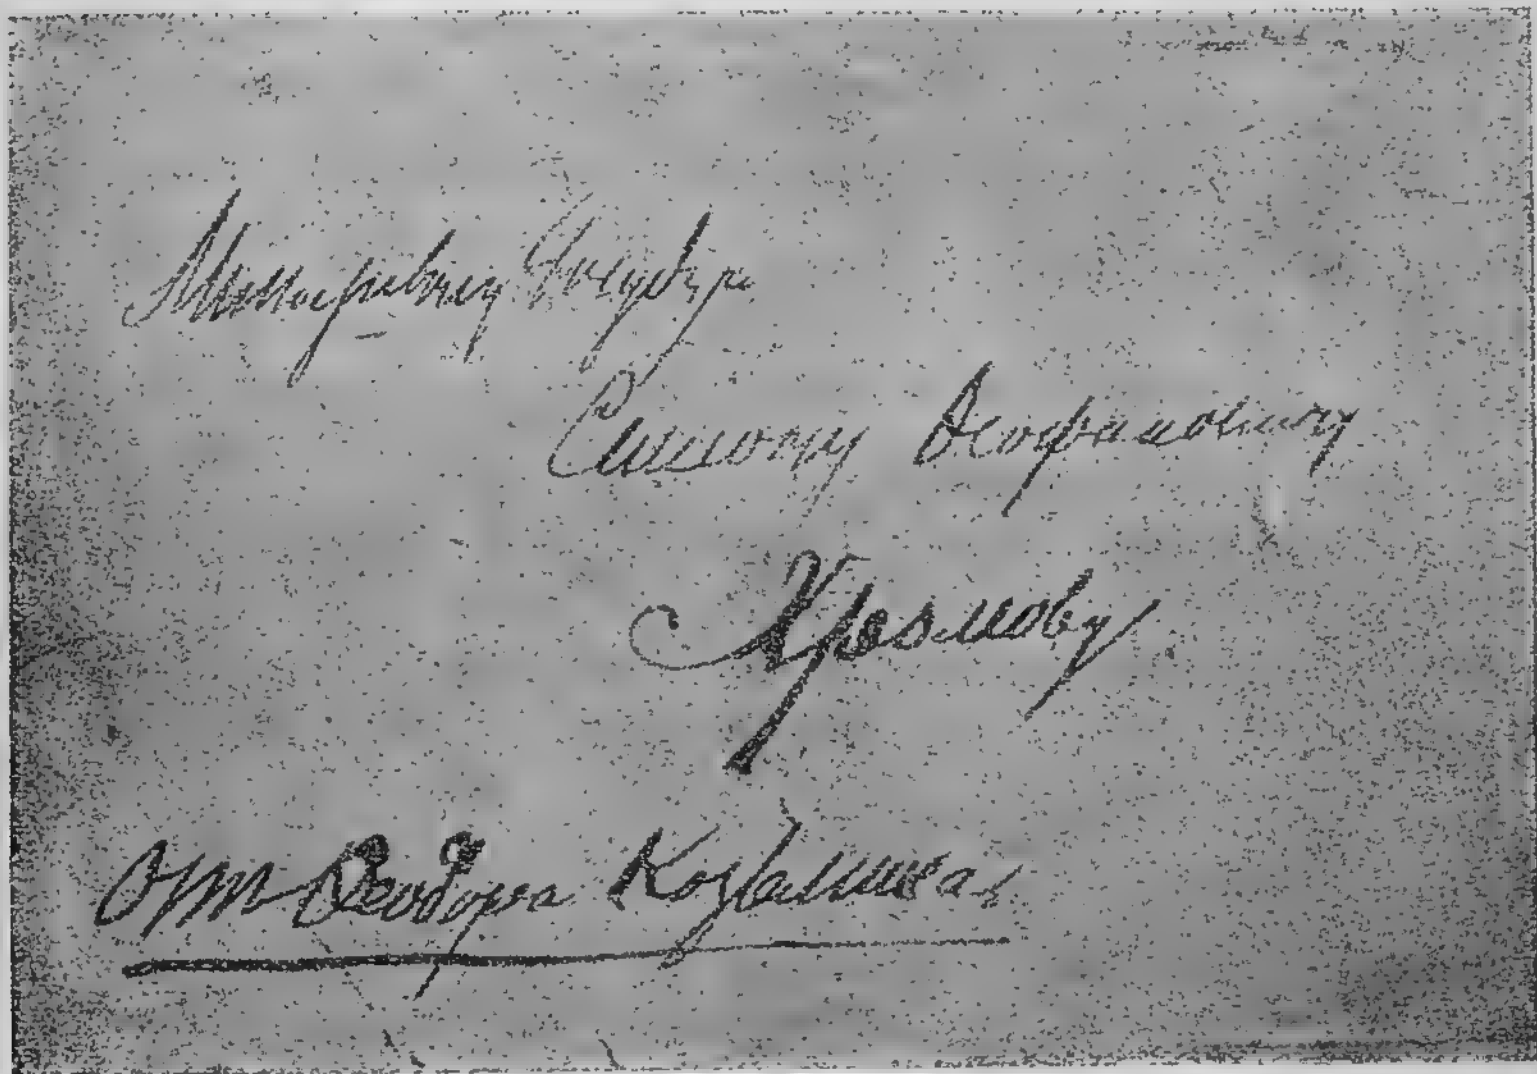 Милостивому Государю
Симиону Ѳеофановичу
Хромову
От Ѳеодора Козьмича